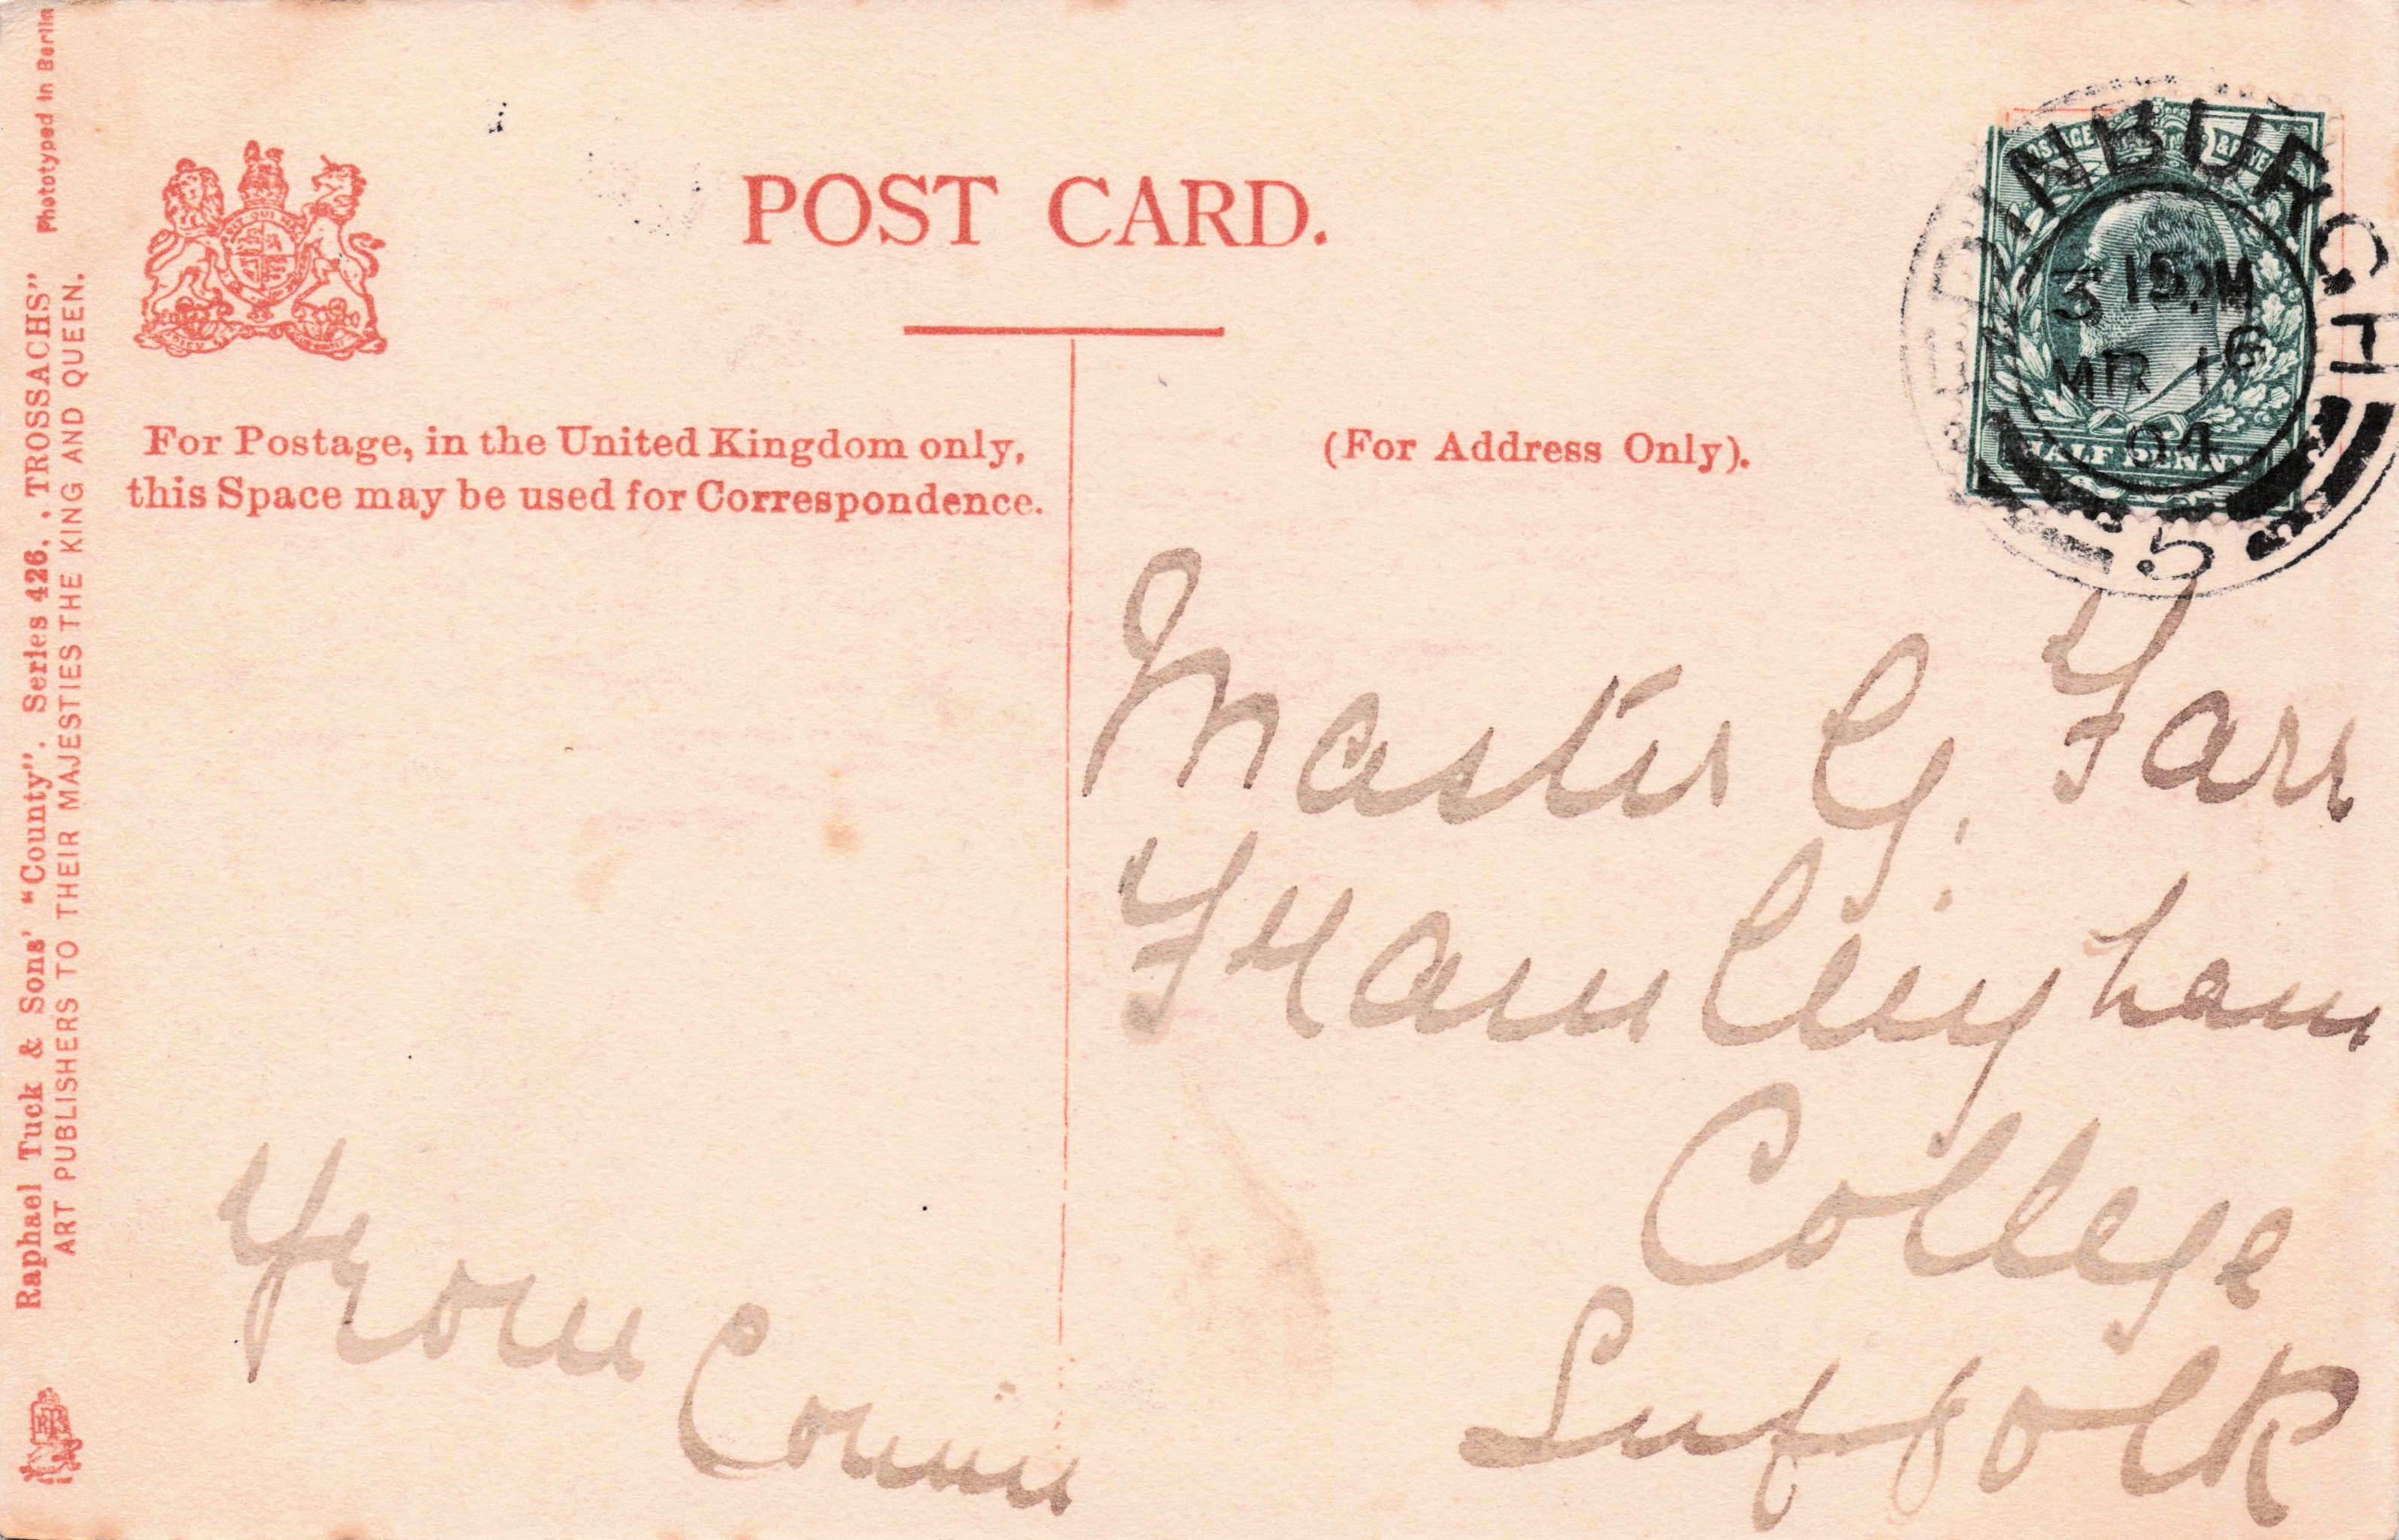 POST CARD.
For Postage, in the United Kingdom only,
this Space may be used for Correspondence.
(For Address Only).
EDINBURGH
3 15 PM
MR 16
04
5
POSTAGE & REVENUE
HALF PENNY
Master G. Farr
Framlingham
College
Suffolk
From Connie
Raphael Tuck & Sons' "County". Series 426, "TROSSACHS" Phototyped in Berlin
ART PUBLISHERS TO THEIR MAJESTIES THE KING AND QUEEN.